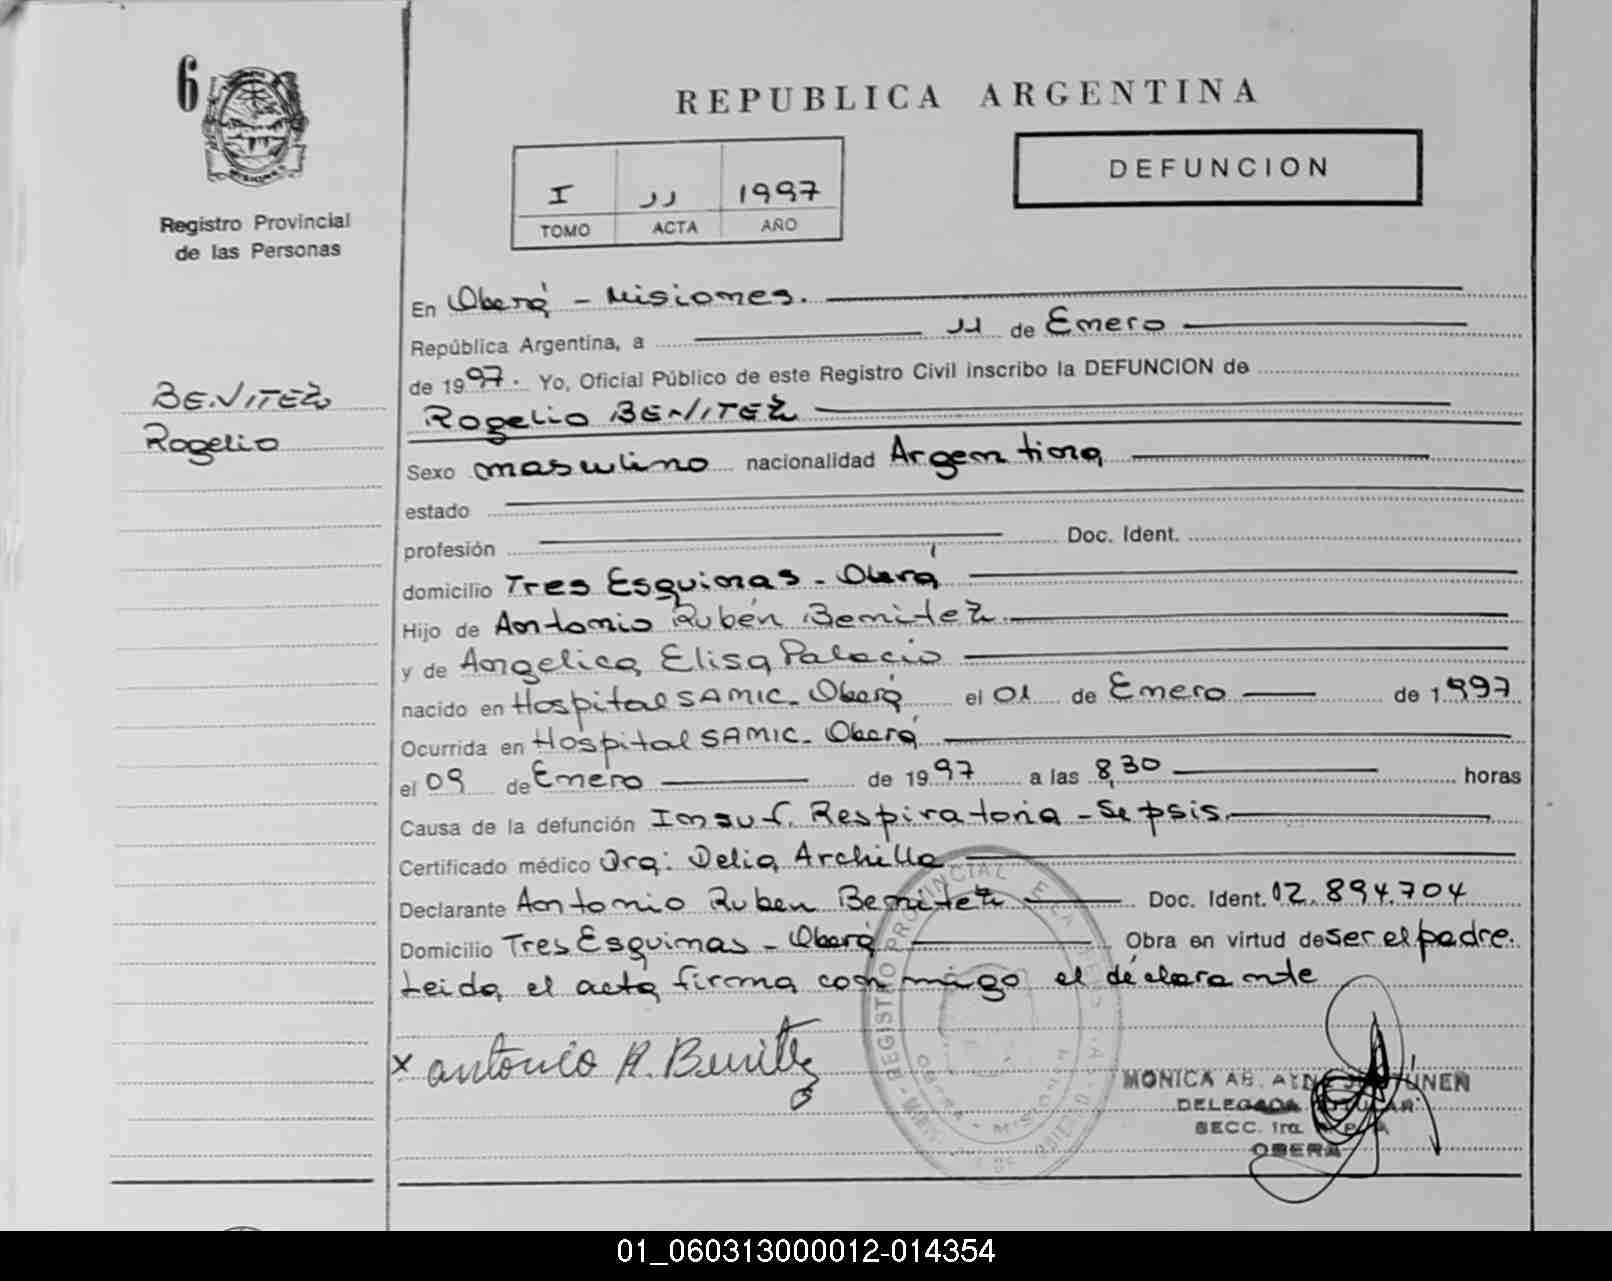 6
REPUBLICA ARGENTINA
DEFUNCION
I 11 1997
TOMO ACTA AÑO
Registro Provincial
de las Personas
BENITEZ
Rogelio
En Oberá - Misiones.
República Argentina, a 11 de Enero
de 1997. Yo, Oficial Público de este Registro Civil inscribo la DEFUNCION de
Rogelio BENITEZ
Sexo masculino nacionalidad Argentina
estado
profesión Doc. Ident.
domicilio Tres Esquinas - Oberá
Hijo de Antonio Rubén Benitez
y de Angelica Elisa Palacio
nacido en Hospital SAMIC. Oberá el 01 de Enero de 1997
Ocurrida en Hospital SAMIC. Oberá
el 09 de Enero de 1997 a las 8,30 horas
Causa de la defunción Insuf. Respiratoria - Sepsis
Certificado médico Dra: Delia Archilla
Declarante Antonio Ruben Benitez Doc. Ident. 02.894.704
Domicilio Tres Esquinas - Oberá Obra en virtud de ser el padre.
Leida el acta firma conmigo el declarante
x antonio R. Benitez
REGISTRO PROVINCIAL DE LAS
OBERA - MISIONES
MONICA
DELEGADA TITULAR
SECC. 1ra.
OBERA
01_060313000012-014354